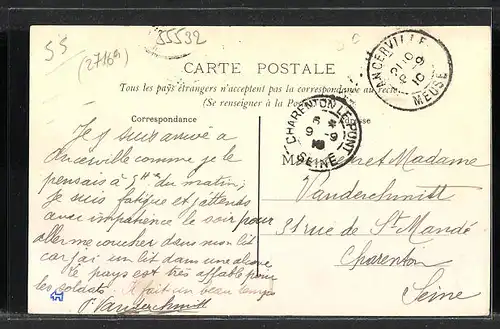 55
(2716a)
35532
CARTE POSTALE
Tous les pays étrangers n'acceptent pas la correspondance au recto
(Se renseigner à la Poste
Correspondance
Adresse
ANCERVILLE
MEUSE
CHARENTON LE PONT
6 *
9 -9
10
SEINE
Je suis arrivé à
Ancerville comme je le
pensais à 5 Hre du matin,
je suis fatigué et j'attends
avec impatience le soir pour
aller me coucher dans mon lit
car j'ai un lit dans une
le pays est très affable pour
les soldats. Il fait un beau temps
P. Vanderschmitt
et Madame
Vanderschmitt
31 rue de St Mandé
Charenton
Seine